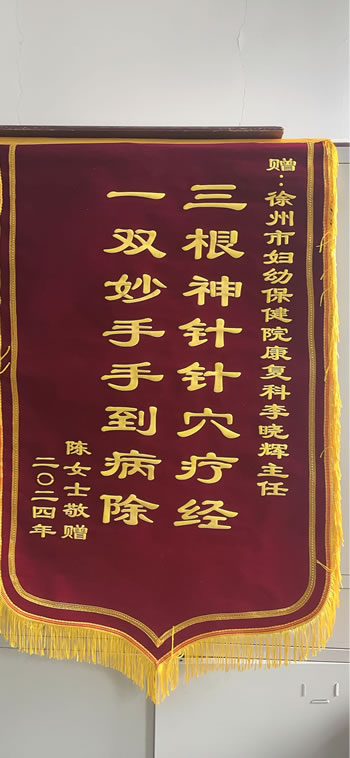 赠：徐州市妇幼保健院康复科李晓辉主任
三根神针针穴疗经
一双妙手手到病除
陈女士敬赠
二〇二四年